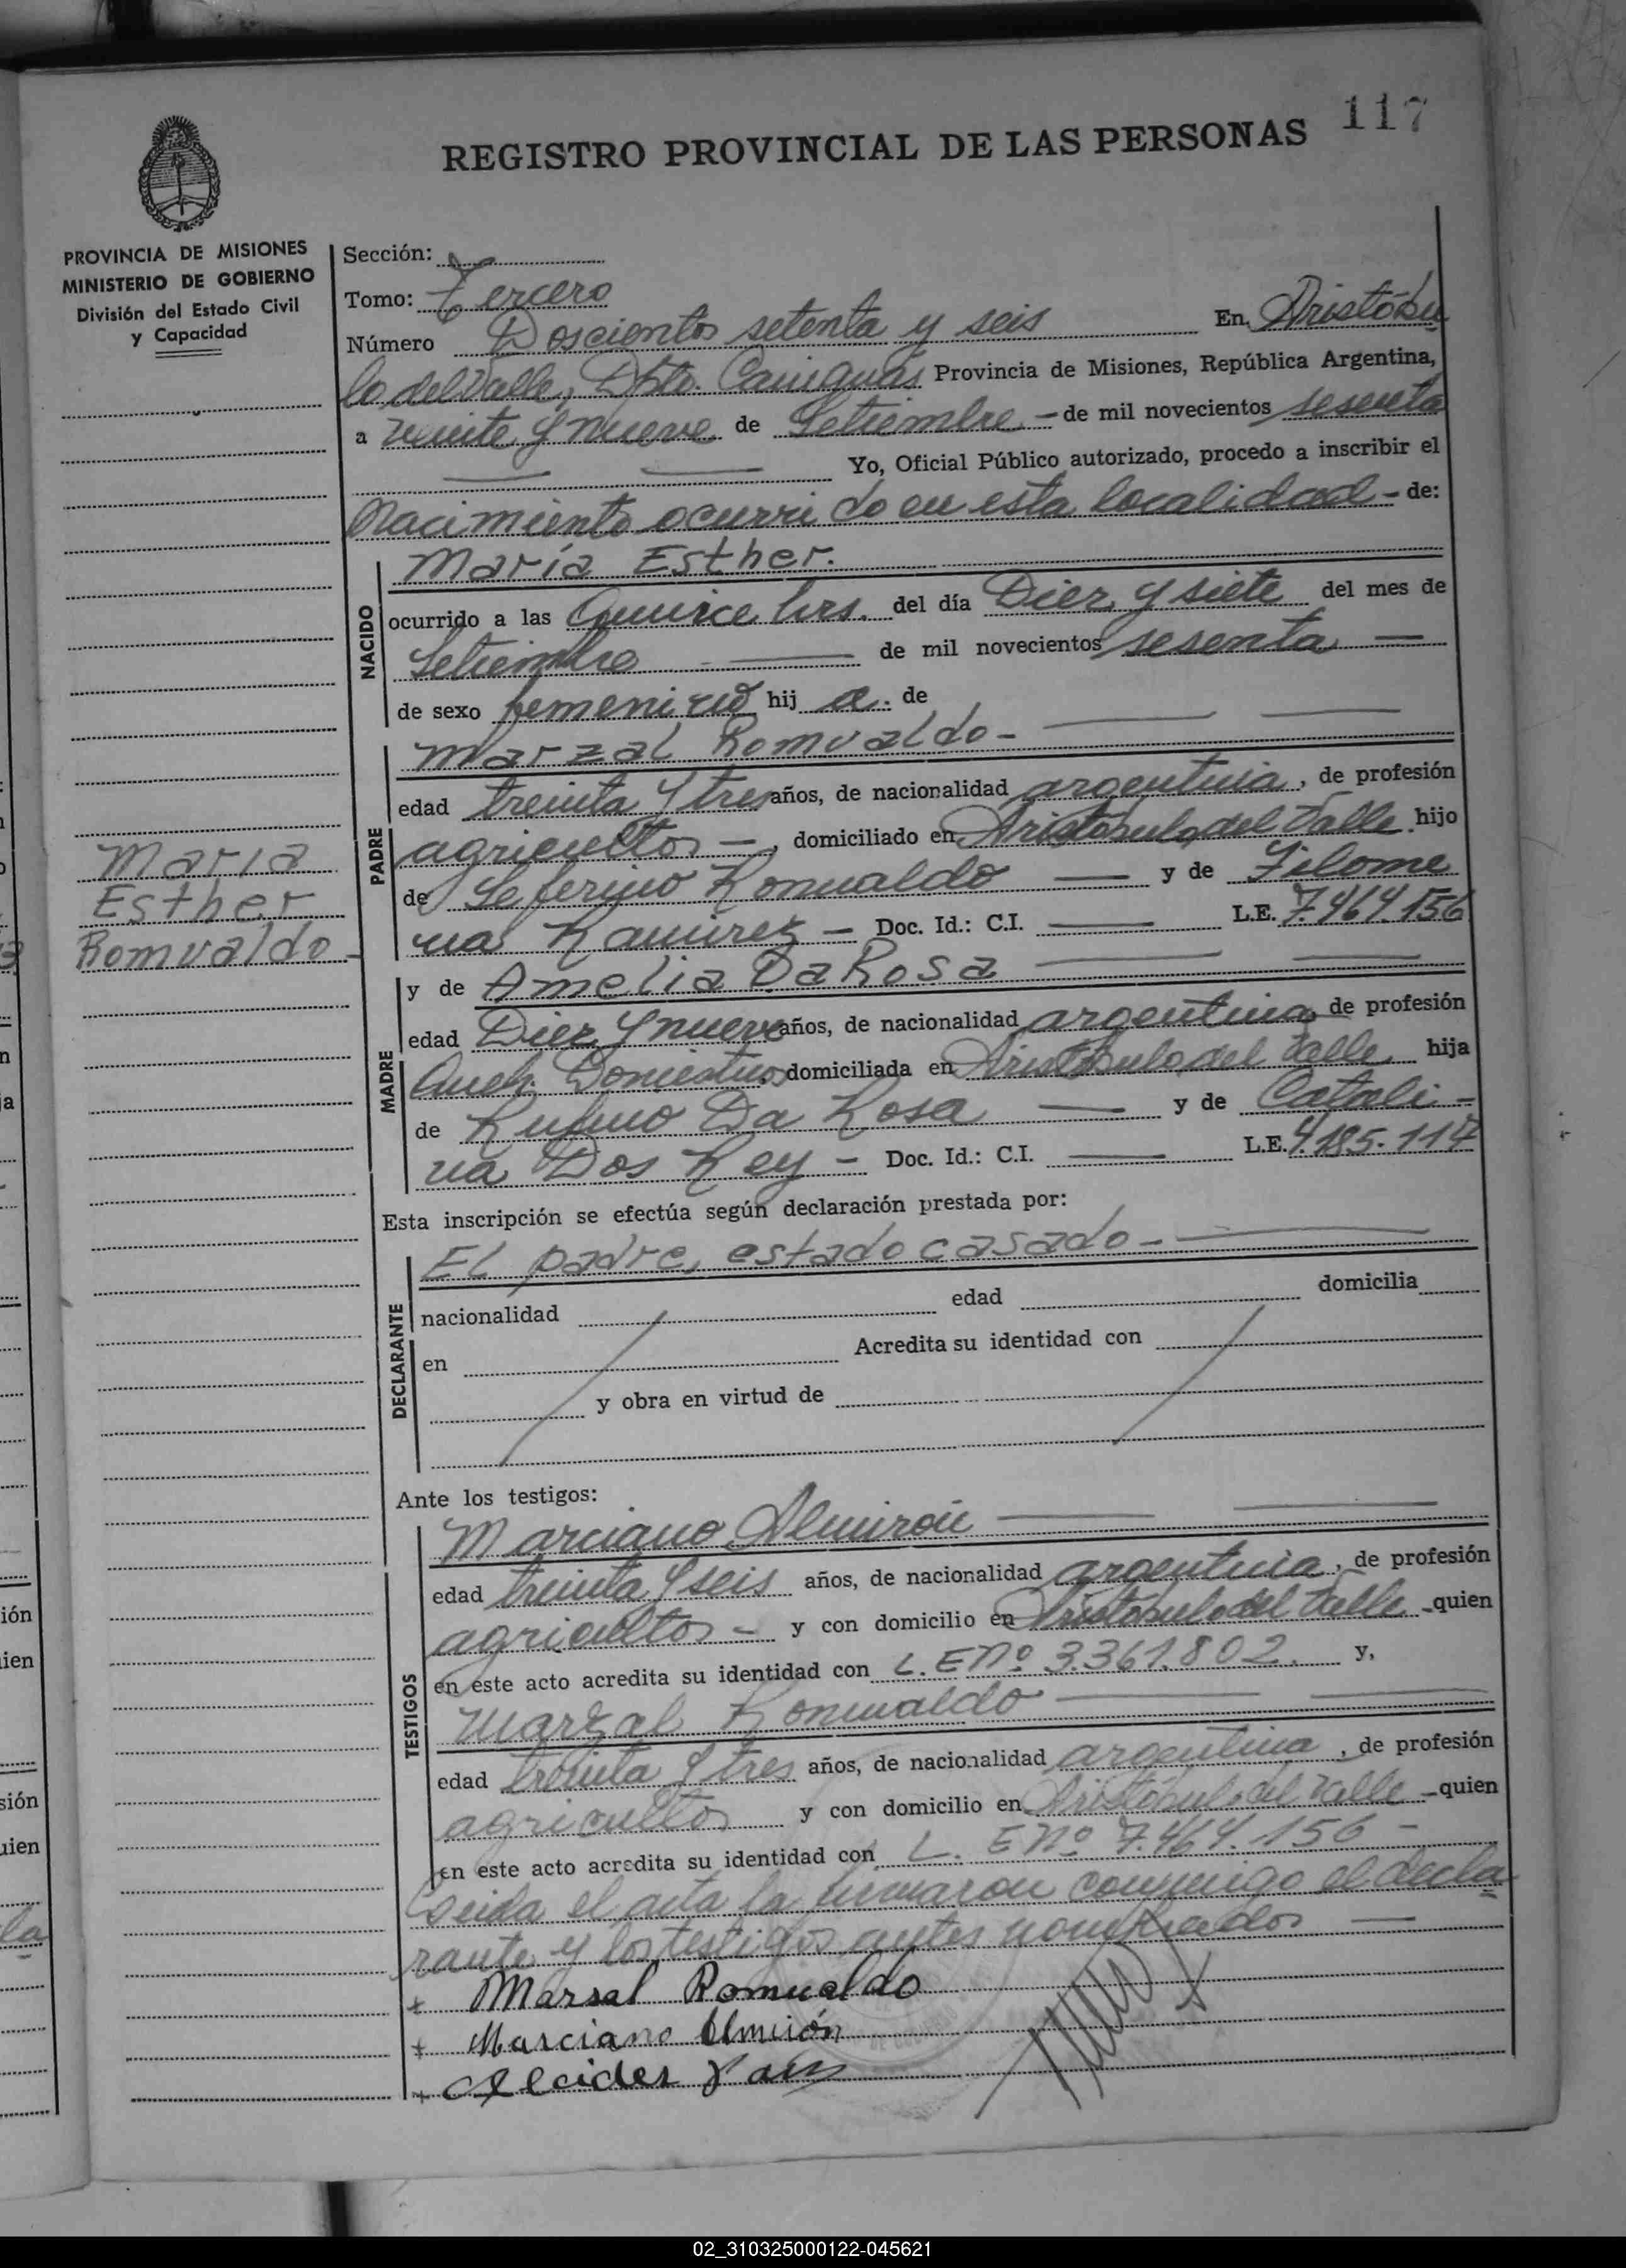 117
REGISTRO PROVINCIAL DE LAS PERSONAS
PROVINCIA DE MISIONES
MINISTERIO DE GOBIERNO
División del Estado Civil
y Capacidad
Sección:
Tomo: tercero
Número Doscientos setenta y seis En Aristóbu
lo del Valle, Dpto. Cainguás Provincia de Misiones, República Argentina,
a veinte y nueve de Setiembre - de mil novecientos sesenta
Yo, Oficial Público autorizado, procedo a inscribir el
Nacimiento ocurrido en esta localidad - de:
NACIDO
María Esther.
ocurrido a las Quince hrs. del día Diez y siete del mes de
Setiembre de mil novecientos sesenta
de sexo femenino hij a. de
PADRE
Marzal Romualdo-
edad treinta y tres años, de nacionalidad argentina, de profesión
agricultor -, domiciliado en Aristóbulo del Valle hijo
de Seferino Romualdo y de Filome
na Ramirez - Doc. Id.: C.I. L.E. 7.464.156
María
Esther
Romualdo -
MADRE
y de Amelia Da Rosa
edad Diez y nueve años, de nacionalidad argentina, de profesión
Queh. Domesticos, domiciliada en Aristóbulo del Valle hija
de Rufino Da Rosa y de Catali -
na Dos Rey - Doc. Id.: C.I. L.E. 4.185.117
Esta inscripción se efectúa según declaración prestada por:
DECLARANTE
El padre, estado casado -
nacionalidad edad domicilia
en Acredita su identidad con
y obra en virtud de
Ante los testigos:
TESTIGOS
Marciano Almirón
edad treinta y seis años, de nacionalidad argentina, de profesión
agricultor - y con domicilio en Aristóbulo del Valle - quien
en este acto acredita su identidad con L.E Nº 3.361.802. y,
Marzal Romualdo
edad treinta y tres años, de nacionalidad argentina, de profesión
agricultor y con domicilio en Aristóbulo del Valle - quien
en este acto acredita su identidad con L. E Nº 7.464.156 -
Leida el acta la firmaron conmigo el decla
rante y los testigos antes nombrados
+ Marsal Romualdo
+ Marciano Almirón
+ Alcides
02_310325000122-045621